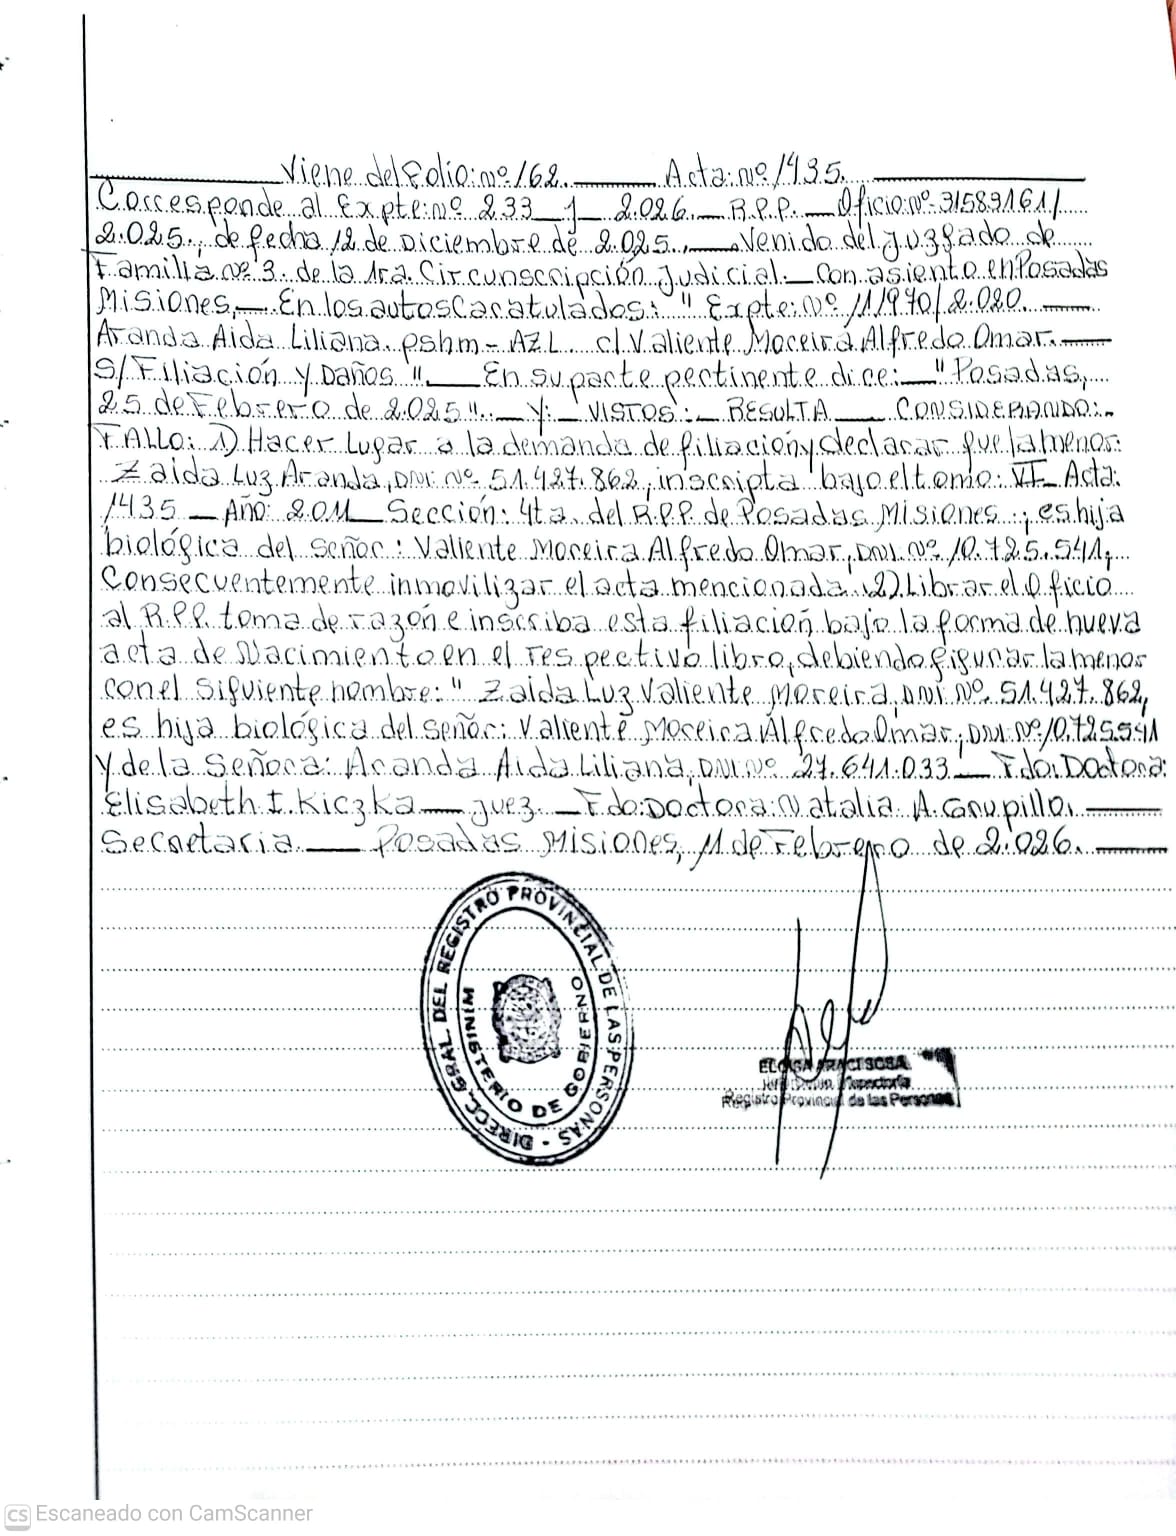 Viene del Folio: nº 162. Acta: nº 1435.
Corresponde al Expte: nº 233 J 2.026. R.P.P. Oficio: nº 31589161/
2.025., de fecha 12 de Diciembre de 2.025., Venido del Juzgado de
Familia nº 3. de la 1ra. Circunscripción Judicial. Con asiento en Posadas
Misiones, En los autos Caratulados: " Expte: Nº 111970/2.020.
Aranda Aida Liliana. pshm - AZL c/ Valiente Moreira Alfredo Omar.
S/Filiación y Daños ". En su parte pertinente dice: " Posadas,
25 de Febrero de 2.025". Y: VISTOS: RESULTA CONSIDERANDO:
FALLO: 1) Hacer Lugar a la demanda de filiación y declarar que la menor:
Zaida Luz Aranda, DNI. Nº 51.427.862, inscripta bajo el tomo: VI Acta:
1435 Año: 2.011 Sección: 4ta. del R.P.P. de Posadas Misiones., es hija
biológica del Señor: Valiente Moreira Alfredo Omar, DNI. Nº 10.725.541,
Consecuentemente inmovilizar el acta mencionada. 2) Librar el Oficio
al R.P.P. toma de razón e inscriba esta filiación bajo la forma de nueva
acta de Nacimiento en el respectivo libro, debiendo figurar la menor
con el siguiente nombre: " Zaida Luz Valiente Moreira, DNI. Nº 51.427.862,
es hija biológica del señor: Valiente Moreira Alfredo Omar, DNI. Nº 10.725541
y de la Señora: Aranda Aida Liliana, DNI. Nº 27.641.033 Fdo: Doctora:
Elisabeth. I. Kiczka Juez. Fdo: Doctora: Natalia. A. Grupillo.
Secretaria. Posadas Misiones, 11 de Febrero de 2.026.
DIRECC. GRAL. DEL REGISTRO PROVINCIAL DE LAS PERSONAS -
MINISTERIO DE GOBIERNO
ARACI SOSA
Inspectoría
Registro Provincial de las Personas
CS Escaneado con CamScanner